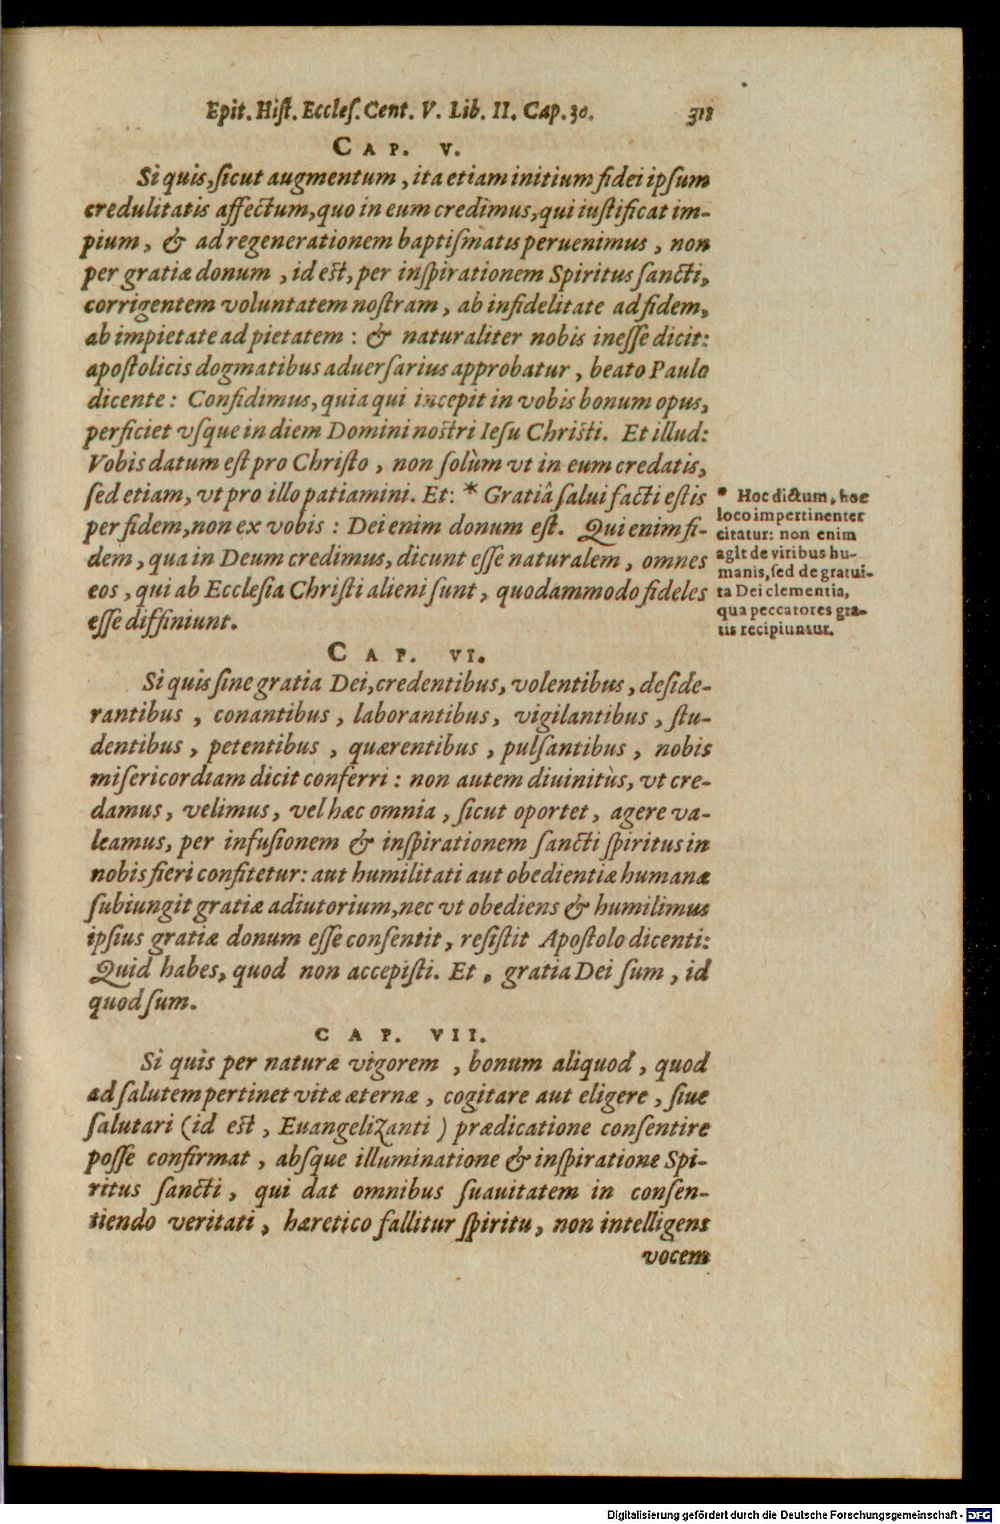 Epit. Hiſt. Eccleſ. Cent. V. Lib. II. Cap. 30. 318
CAP. V.
Si quis, ſicut augmentum, ita etiam initium fidei ipſum
credulitatis affectum, quo in eum credimus, qui iuſtificat im-
pium, & ad regenerationem baptiſmatis peruenimus, non
per gratiæ donum, id eſt, per inſpirationem Spiritus ſancti,
corrigentem voluntatem noſtram, ab infidelitate ad fidem,
ab impietate ad pietatem: & naturaliter nobis ineſſe dicit:
apoſtolicis dogmatibus aduerſarius approbatur, beato Paulo
dicente: Confidimus, quia qui incepit in vobis bonum opus,
perficiet vſque in diem Domini noſtri Ieſu Chriſti. Et illud:
Vobis datum eſt pro Chriſto, non ſolùm vt in eum credatis,
ſed etiam, vt pro illo patiamini. Et: * Gratiâ ſalui facti eſtis
per fidem, non ex vobis: Dei enim donum eſt. Qui enim fi-
dem, qua in Deum credimus, dicunt eſſe naturalem, omnes
eos, qui ab Eccleſia Chriſti alieni ſunt, quodammodo fideles
eſſe diffiniunt.
* Hoc dictum, hoc
loco impertinenter
citatur: non enim
agit de viribus hu-
manis, ſed de gratui-
ta Dei clementia,
qua peccatores gra-
tis recipiuntur.
CAP. VI.
Si quis ſine gratia Dei, credentibus, volentibus, deſide-
rantibus, conantibus, laborantibus, vigilantibus, ſtu-
dentibus, petentibus, quærentibus, pulſantibus, nobis
miſericordiam dicit conferri: non autem diuinitùs, vt cre-
damus, velimus, vel hæc omnia, ſicut oportet, agere va-
leamus, per infuſionem & inſpirationem ſancti ſpiritus in
nobis fieri confitetur: aut humilitati aut obedientiæ humanæ
ſubiungit gratiæ adiutorium, nec vt obediens & humilimus
ipſius gratiæ donum eſſe conſentit, reſiſtit Apoſtolo dicenti:
Quid habes, quod non accepiſti. Et, gratia Dei ſum, id
quod ſum.
CAP. VII.
Si quis per naturæ vigorem, bonum aliquod, quod
ad ſalutem pertinet vitæ æternæ, cogitare aut eligere, ſiue
ſalutari (id eſt, Euangelizanti) prædicatione conſentire
poſſe confirmat, abſque illuminatione & inſpiratione Spi-
ritus ſancti, qui dat omnibus ſuauitatem in conſen-
tiendo veritati, hæretico fallitur ſpiritu, non intelligens
vocem
Digitalisierung gefördert durch die Deutsche Forschungsgemeinschaft - DFG